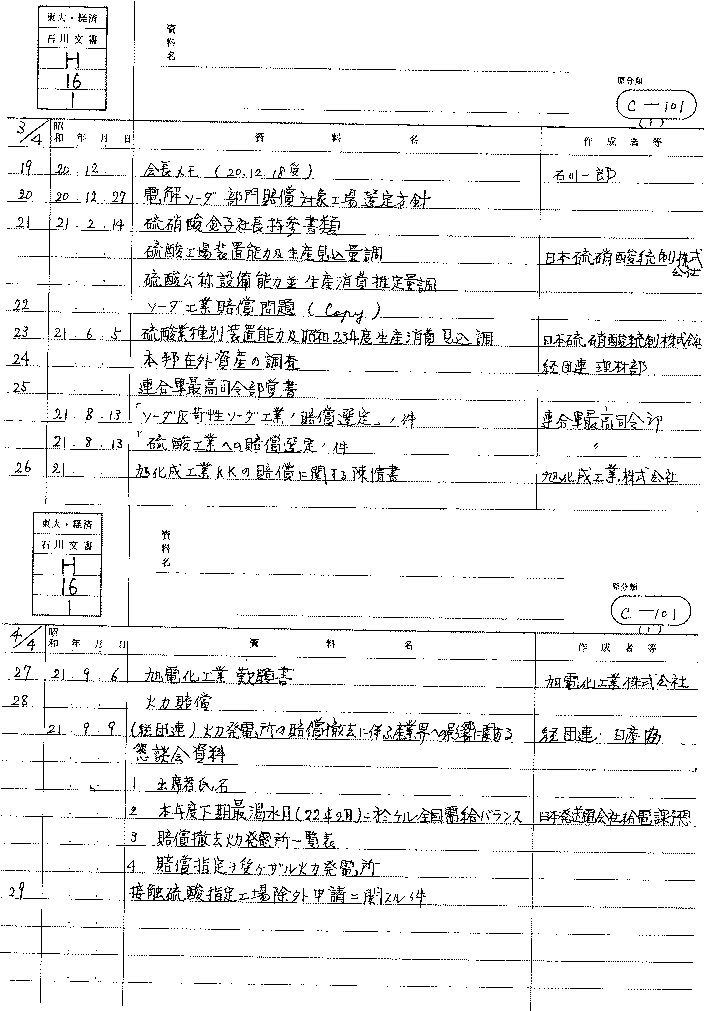 東大・経済
石川文書
H
16
1
資料名
原分類
C-101
(1)
3/4 昭和 年 月 日 資料名 作成者等
19 20.12. 会長メモ (20.12.18度) 石川一郎
20 20.12.27 電解ソーダ部門賠償対象工場選定方針
21 21.2.14 硫硝酸金子社長持参書類
硫酸工場装置能力及生産見込量調 日本硫硝酸統制株式会社
硫酸公称設備能力並生産消費推定量調
22 ソーダ工業賠償問題 (Copy)
23 21.6.5 硫酸業種別装置能力及昭和23年度生産消費見込調 日本硫硝酸統制株式会社
24 本邦在外資産の調査 経団連 理財部
25 連合軍最高司令部覚書
21.8.13 「ソーダ灰苛性ソーダ工業ノ賠償選定」ノ件 連合軍最高司令部
21.8.13 「硫酸工業への賠償選定」ノ件 〃
26 21. 旭化成工業KKの賠償に関する陳情書 旭化成工業株式会社
東大・経済
石川文書
H
16
1
資料名
原分類
C-101
(1)
4/4 昭和 年 月 日 資料名 作成者等
27 21.9.6 旭電化工業歎願書 旭電化工業株式会社
28 火力賠償
21.9.9 (経団連) 火力発電所の賠償撤去に伴う産業界への影響に関する 経団連・日産協
懇談会資料
1 出席者氏名
2 本年度下期最渇水月(22年2月)ニ於ケル全国電給バランス 日本発送電会社給電課
3 賠償撤去火力発電所一覧表
4 賠償指定ヲ受ケザル火力発電所
29 接触硫酸指定工場除外申請ニ関スル件